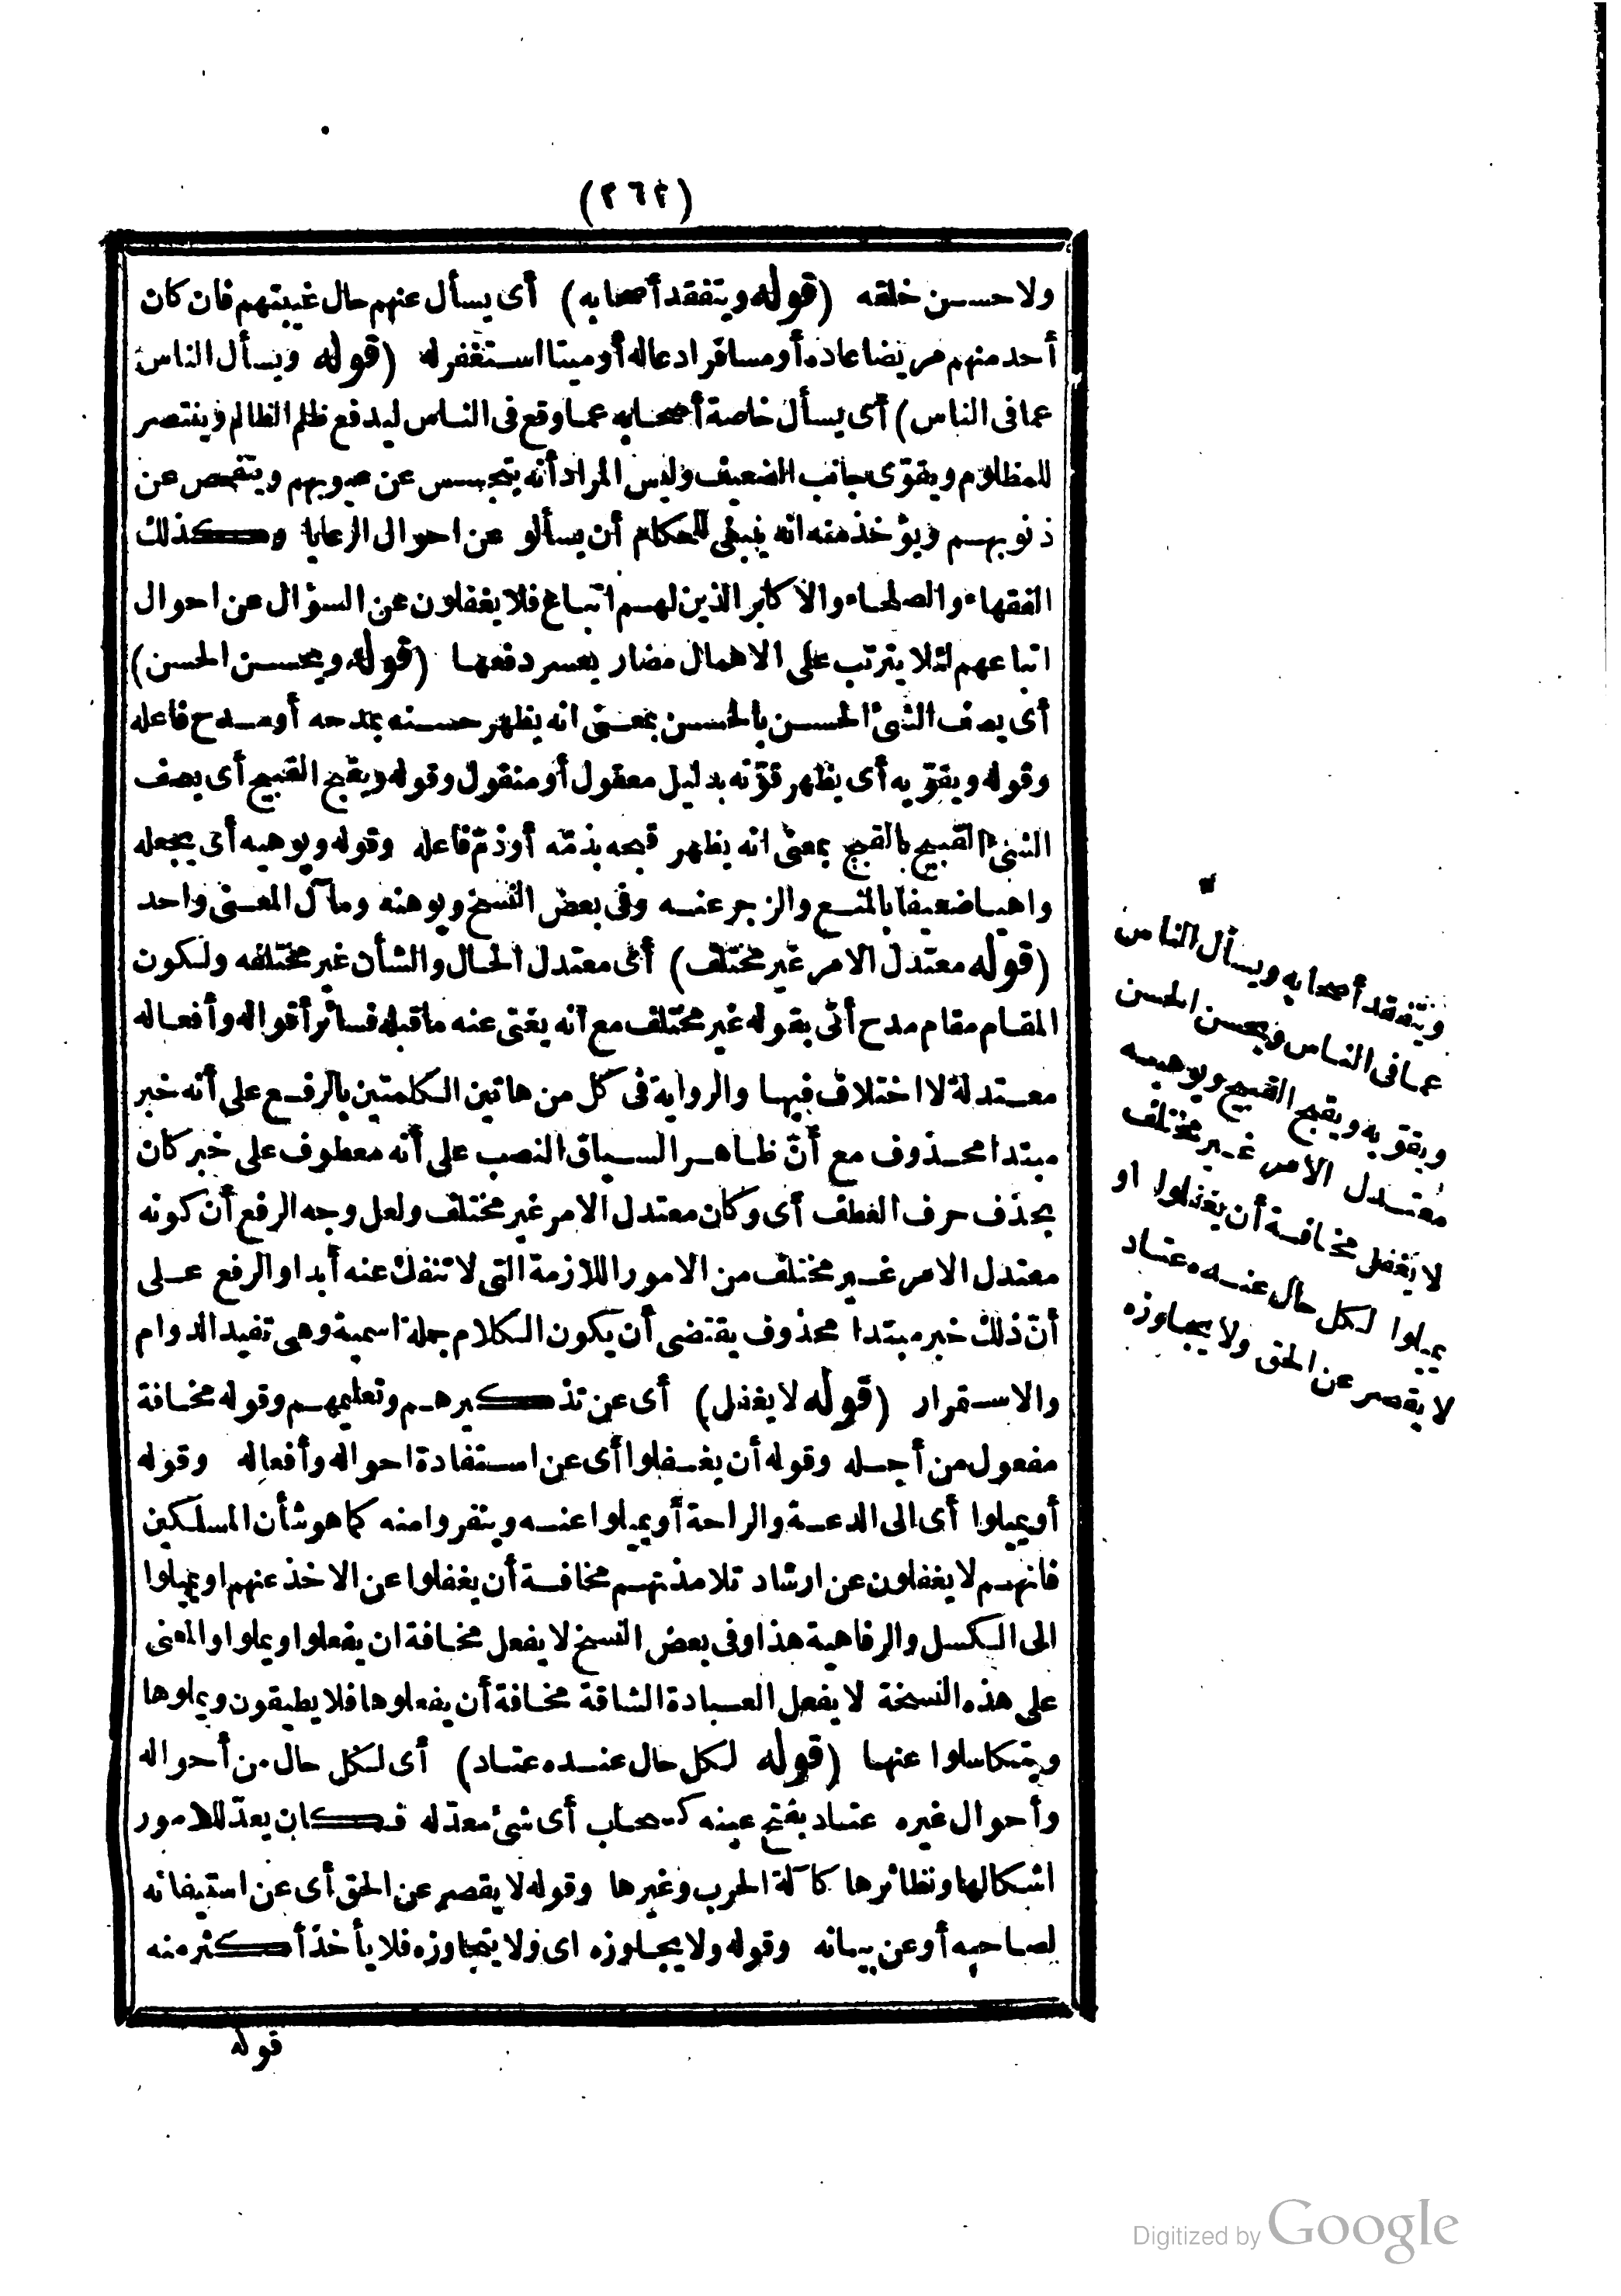 (٢٦٢)
ولاحسن خلقه (قوله ويتفقد أصحابه) أى يسأل عنهم حال غيبتهم فان كان
أحد منهم مريضا عاده أو مسافرا دعا له أو ميتا استغفر له (قوله ويسأل الناس
عما فى الناس) أى يسأل خاصة أصحابه عما وقع فى الناس ليدفع ظلم الظالم وينتصر
للمظلوم ويقوّى جانب الضعيف وليس المراد أنه يتجسس عن عيوبهم ويتفحص عن
ذنوبهم ويؤخذ منه انه ينبغى للحكام أن يسألو عن احوال الرعايا وكذلك
الفقهاء والصلحاء والاكابر الذين لهم اتباع فلا يغفلون عن السؤال عن احوال
اتباعهم لئلا يترتب على الاهمال مضار يعسر دفعها (قوله ويحسن الحسن)
أى يصف الشئ الحسن بالحسن بمعنى انه يظهر حسنه بمدحه أو مدح فاعله
وقوله ويقوّيه أى يظهر قوّته بدليل معقول أو منقول وقوله ويقبح القبيح أى يصف
الشئ القبيح بالقبح بمعنى انه يظهر قبحه بذمّه أو ذمّ فاعله وقوله ويوهيه أى يجعله
واهيا ضعيفا بالمنع والزجر عنه وفى بعض النسخ ويوهنه ومآل المعنى واحد
(قوله معتدل الامر غير مختلف) أى معتدل الحال والشأن غير مختلفه ولكون
المقام مقام مدح أتى بقوله غير مختلف مع أنه يغنى عنه ما قبله فسائر أقواله وأفعاله
معتدلة لا اختلاف فيها والرواية فى كل من هاتين الكلمتين بالرفع على أنه خبر
مبتدا محذوف مع أنّ ظاهر السياق النصب على أنه معطوف على خبر كان
بحذف حرف العطف أى وكان معتدل الامر غير مختلف ولعل وجه الرفع أن كونه
معتدل الامر غير مختلف من الامور اللازمة التى لا تنفك عنه أبدا والرفع على
أنّ ذلك خبر مبتدا محذوف يقتضى أن يكون الكلام جملة اسمية وهى تفيد الدوام
والاستمرار (قوله لا يغفل) أى عن تذكيرهم وتعليمهم وقوله مخافة
مفعول من أجله وقوله أن يغفلوا أى عن استفادة احواله وأفعاله وقوله
أو يميلوا أى الى الدعة والراحة أو يميلوا عنه وينفروا منه كما هو شأن المسلكين
فانهم لا يغفلون عن ارشاد تلامذتهم مخافة أن يغفلوا عن الاخذ عنهم او يميلوا
الى الكسل والرفاهية هذا وفى بعض النسخ لا يفعل مخافة ان يفعلوا ويملوا والمعنى
على هذه النسخة لا يفعل العبادة الشاقة مخافة أن يفعلوها فلا يطيقون ويملوها
ويتكاسلوا عنها (قوله لكل حال عنده عتاد) أى لكل حال من أحواله
وأحوال غيره عتاد بفتح عينه كسحاب أى شئ معدّ له فكان يعدّ للامور
اشكالها ونظائرها كآلة الحرب وغيرها وقوله لا يقصر عن الحق أى عن استيفائه
لصاحبه أو عن بيانه وقوله ولا يجاوزه اى ولا يتجاوزه فلا يأخذ أكثر منه
قوله
ويتفقد أصحابه ويسأل الناس
عما فى الناس ويحسن الحسن
ويقوّيه ويقبح القبيح ويوهيه
معتدل الامر غير مختلف
لا يغفل مخافة أن يغفلوا او
يميلوا لكل حال عنده عتاد
لا يقصر عن الحق ولا يجاوزه
Digitized by Google